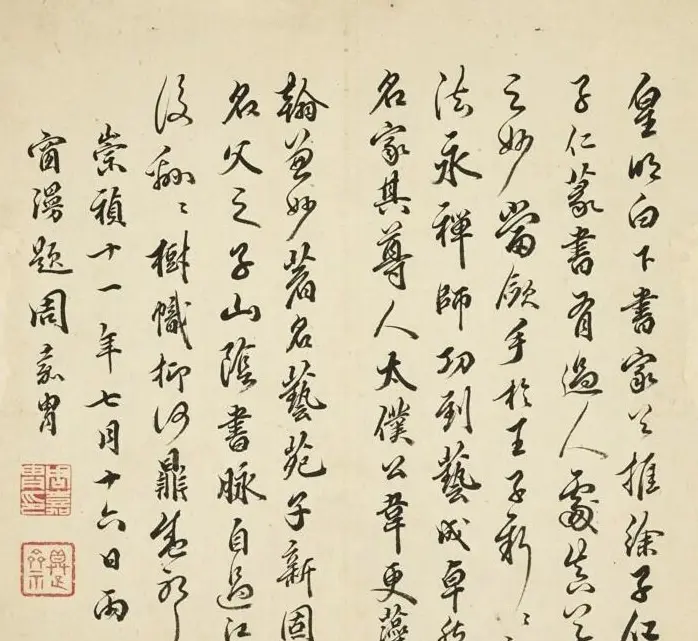 皇明白下書家必推徐子仁
子仁篆書有過人處真
之妙當斂手於王子新〻
法永禪師功到藝成卓然
名家其尊人太僕公韋更藻
翰兼妙著名藝苑子新固
名父之子山陰書脉自過江
後翩〻樹幟抑何鼎盛
崇禎十一年七月十六日雨
窗漫題周嘉胄